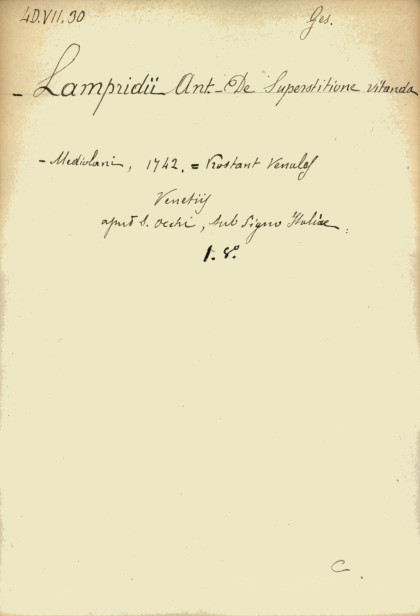 4D.VII.90 Ges.
- Lampridii Ant. - De Superstitione vitanda
- Mediolani, 1742. = Prostant Venales
Venetiis
apud S. Occhi, sub signo Italiae.
1. 8.°
C.